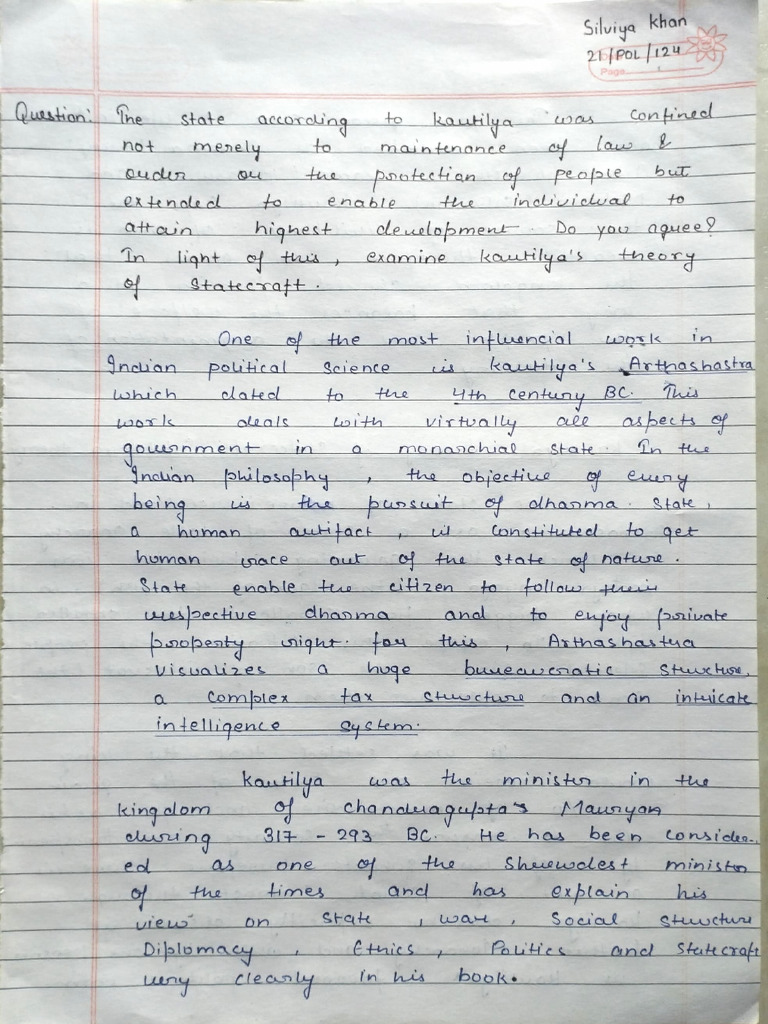 Silviya khan
21/POL/124
Page
Question: The state according to kautilya was confined
not merely to maintenance of law &
order or the protection of people but
extended to enable the individual to
attain highest development. Do you agree?
In light of this, examine kautilya's theory
of Statecraft.
One of the most influencial work in
Indian political science is kautilya's Arthashastra
which dated to the 4th century BC. This
work deals with virtually all aspects of
government in a monarchial state. In the
Indian philosophy, the objective of every
being is the pursuit of dharma. State,
a human artifact, is constituted to get
human race out of the state of nature.
State enable the citizen to follow their
respective dharma and to enjoy private
property right. for this, Arthashastra
visualizes a huge bureaucratic structure,
a complex tax structure and an intricate
intelligence system.
kautilya was the minister in the
kingdom of chandragupta's Mauryan
during 317 - 293 BC. He has been consider-
ed as one of the shrewdest minister
of the times and has explain his
view on state, war, Social structure
Diplomacy, Ethics, Politics and statecraft
very clearly in his book.